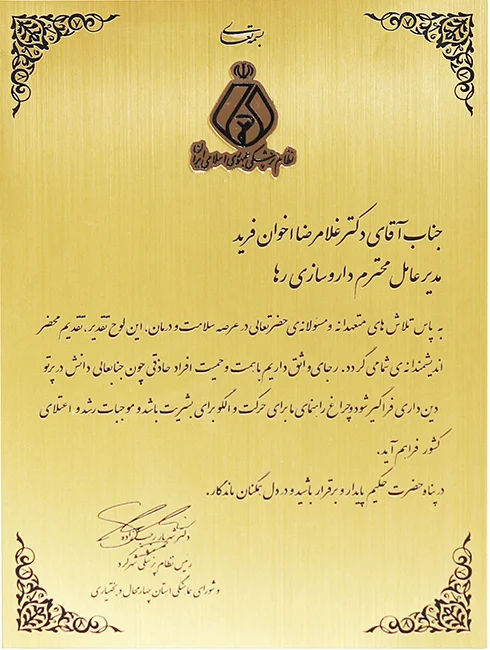 بسمه تعالی
نظام پزشکی جمهوری اسلامی ایران
جناب آقای دکتر غلامرضا اخوان فرید
مدیر عامل محترم داروسازی رها
به پاس تلاش های متعهدانه و مسئولانه ی حضرتعالی در عرصه سلامت و درمان، این لوح تقدیر، تقدیم محضر
اندیشمندانه ی شما می گردد. رجای واثق داریم با همت و حمیت افراد حاذقی چون جنابعالی دانش در پرتو
دین داری فراگیر شود و چراغ راهنمای ما برای حرکت و الگو برای بشریت باشد و موجبات رشد و اعتلای
کشور فراهم آید.
در پناه حضرت حکیم پایدار و برقرار باشید و در دل همگنان ماندگار.
دکتر شهریار
رئیس نظام پزشکی شهرکرد
و شورای هماهنگی استان چهارمحال و بختیاری